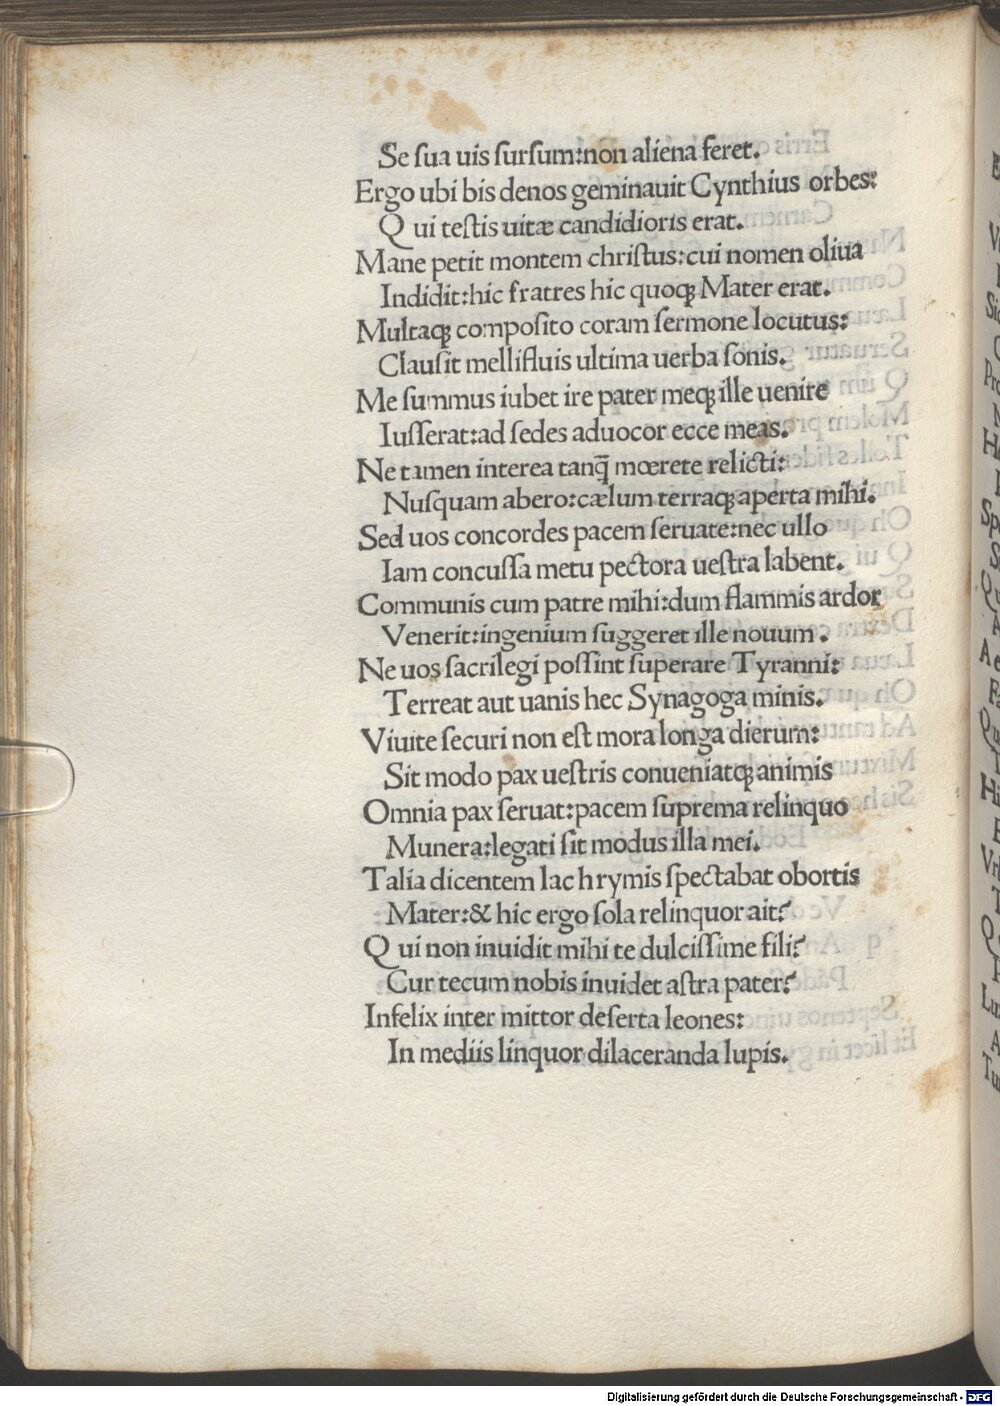 Se ſua uis ſurſum:non aliena feret.
Ergo ubi bis denos geminauit Cynthius orbes:
Qui teſtis uitæ candidioris erat.
Mane petit montem chriſtus:cui nomen oliua
Indidit:hic fratres hic quoqꝫ Mater erat.
Multaqꝫ compoſito coram ſermone locutus:
Clauſit mellifluis ultima uerba ſonis.
Me ſummus iubet ire pater meqꝫ ille uenire
Iuſſerat:ad ſedes aduocor ecce meas.
Ne tamen interea tanq̄ mœrete relicti:
Nuſquam abero:cælum terraqꝫ aperta mihi.
Sed uos concordes pacem ſeruate:nec ullo
Iam concuſſa metu pectora ueſtra labent.
Communis cum patre mihi:dum flammis ardor
Venerit:ingenium ſuggeret ille nouum.
Ne uos ſacrilegi poſſint ſuperare Tyranni:
Terreat aut uanis hec Synagoga minis.
Viuite ſecuri non eſt mora longa dierum:
Sit modo pax ueſtris conueniatqꝫ animis
Omnia pax ſeruat:pacem ſuprema relinquo
Munera:legati ſit modus illa mei.
Talia dicentem lachrymis ſpectabat obortis
Mater:& hic ergo ſola relinquor ait?
Qui non inuidit mihi te dulciſſime fili?
Cur tecum nobis inuidet aſtra pater?
Infelix inter mittor deſerta leones:
In mediis linquor dilaceranda lupis.
Digitalisierung gefördert durch die Deutsche Forschungsgemeinschaft - DFG